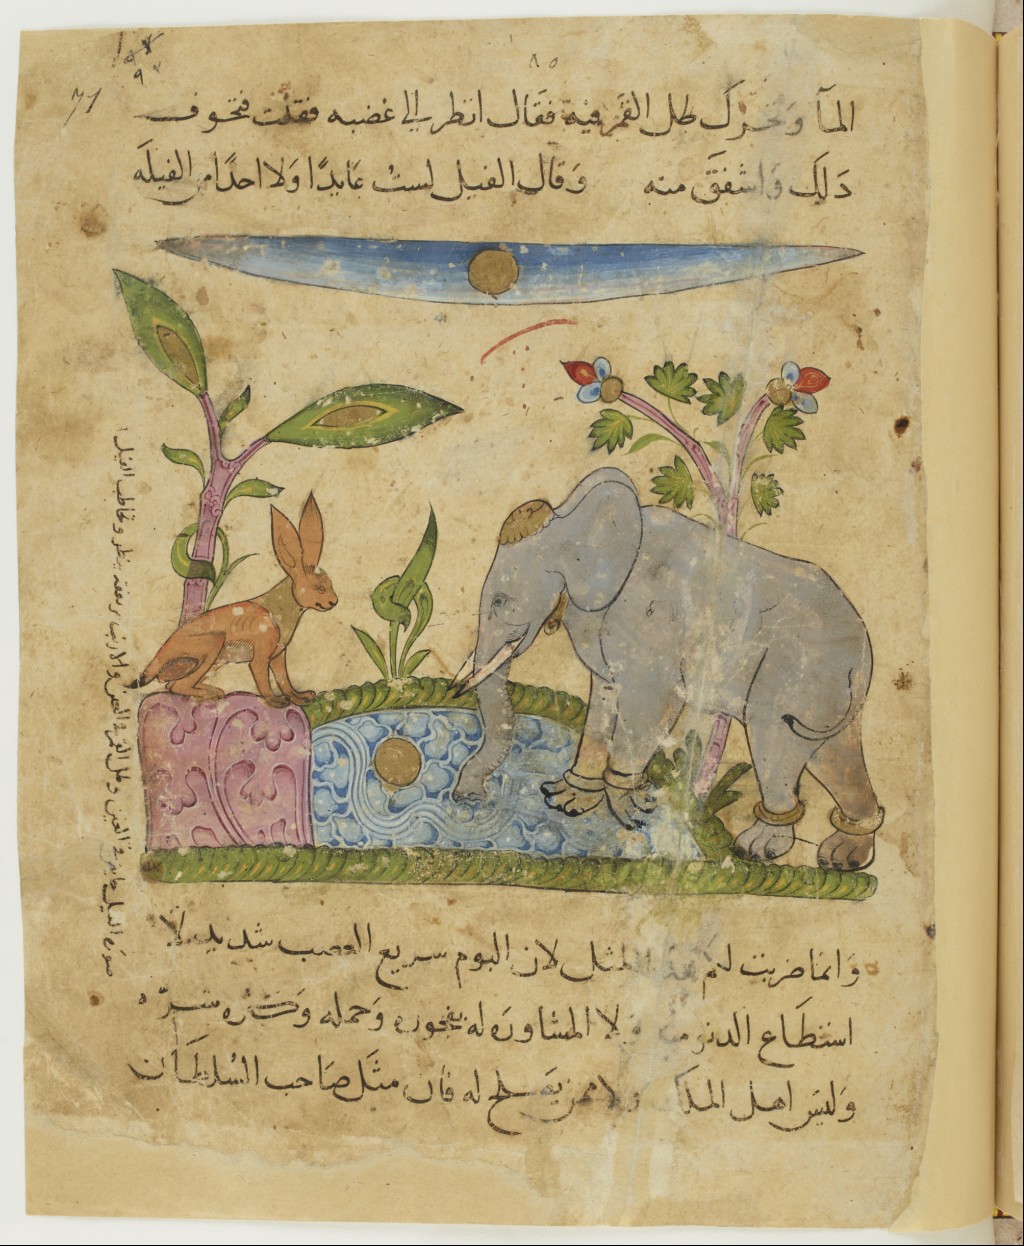 ٨٥
71
المآ وتحرك ظل القمر فيه فقال انظر الى غضبه فقلت فتخوف
ذلك واشفق منه وقال الفيل لست عابدًا ولا احدًا من الفيله
صورة الفيل في العين وظل القمر في العين والارنب ينظر ويخاطب الفيل
وانما ضربت لكم هذا المثل لان البوم سريع الغضب شديد لا
استطاع الدنو منه ولا المشاوره له بفجوره وحمله وكثره شره
وليس اهل الملك ولا ممن يصلح له فان مثل صاحب السلطان